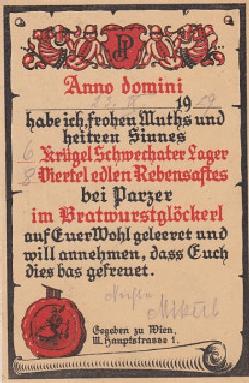 JP
Anno domini
1929
habe ich, frohen Muths und
heitren Sinnes
6 Krügel Schwechater Lager
8 Viertel edlen Rebensaftes
bei Parzer
im Bratwurstglöckerl
auf Euer Wohl geleeret und
will annehmen, dass Euch
dies bas gefreuet.
Gegeben zu Wien,
III. Hauptstrasse 1.